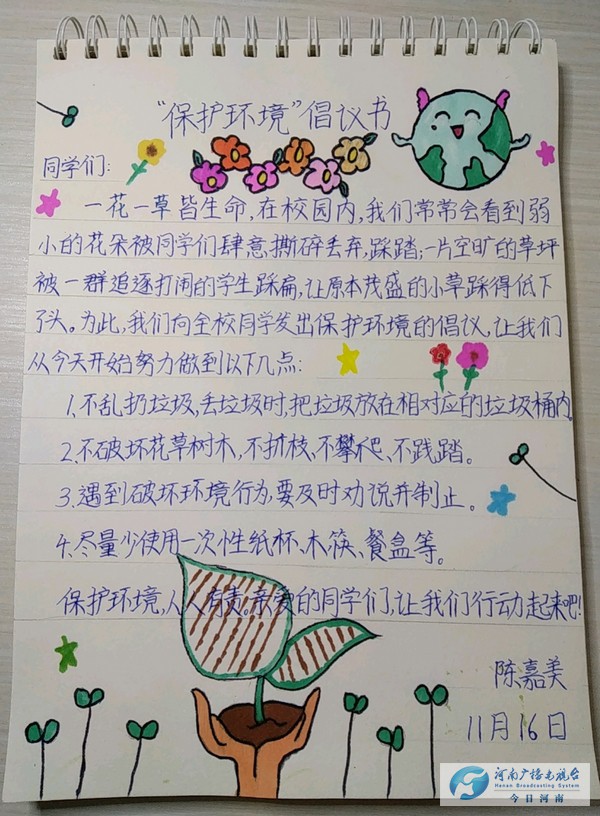 “保护环境”倡议书
同学们:
一花一草皆生命,在校园内,我们常常会看到弱
小的花朵被同学们肆意撕碎丢弃,踩踏;一片空旷的草坪
被一群追逐打闹的学生踩扁,让原本茂盛的小草踩得低下
了头。为此,我们向全校同学发出保护环境的倡议,让我们
从今天开始努力做到以下几点:
1.不乱扔垃圾,丢垃圾时,把垃圾放在相对应的垃圾桶内。
2.不破坏花草树木,不折枝、不攀爬、不践踏。
3.遇到破坏环境行为,要及时劝说并制止。
4.尽量少使用一次性纸杯、木筷、餐盒等。
保护环境,人人有责。亲爱的同学们,让我们行动起来吧!
陈嘉美
11月16日
河南广播电视台
Henan Broadcasting System
今日河南